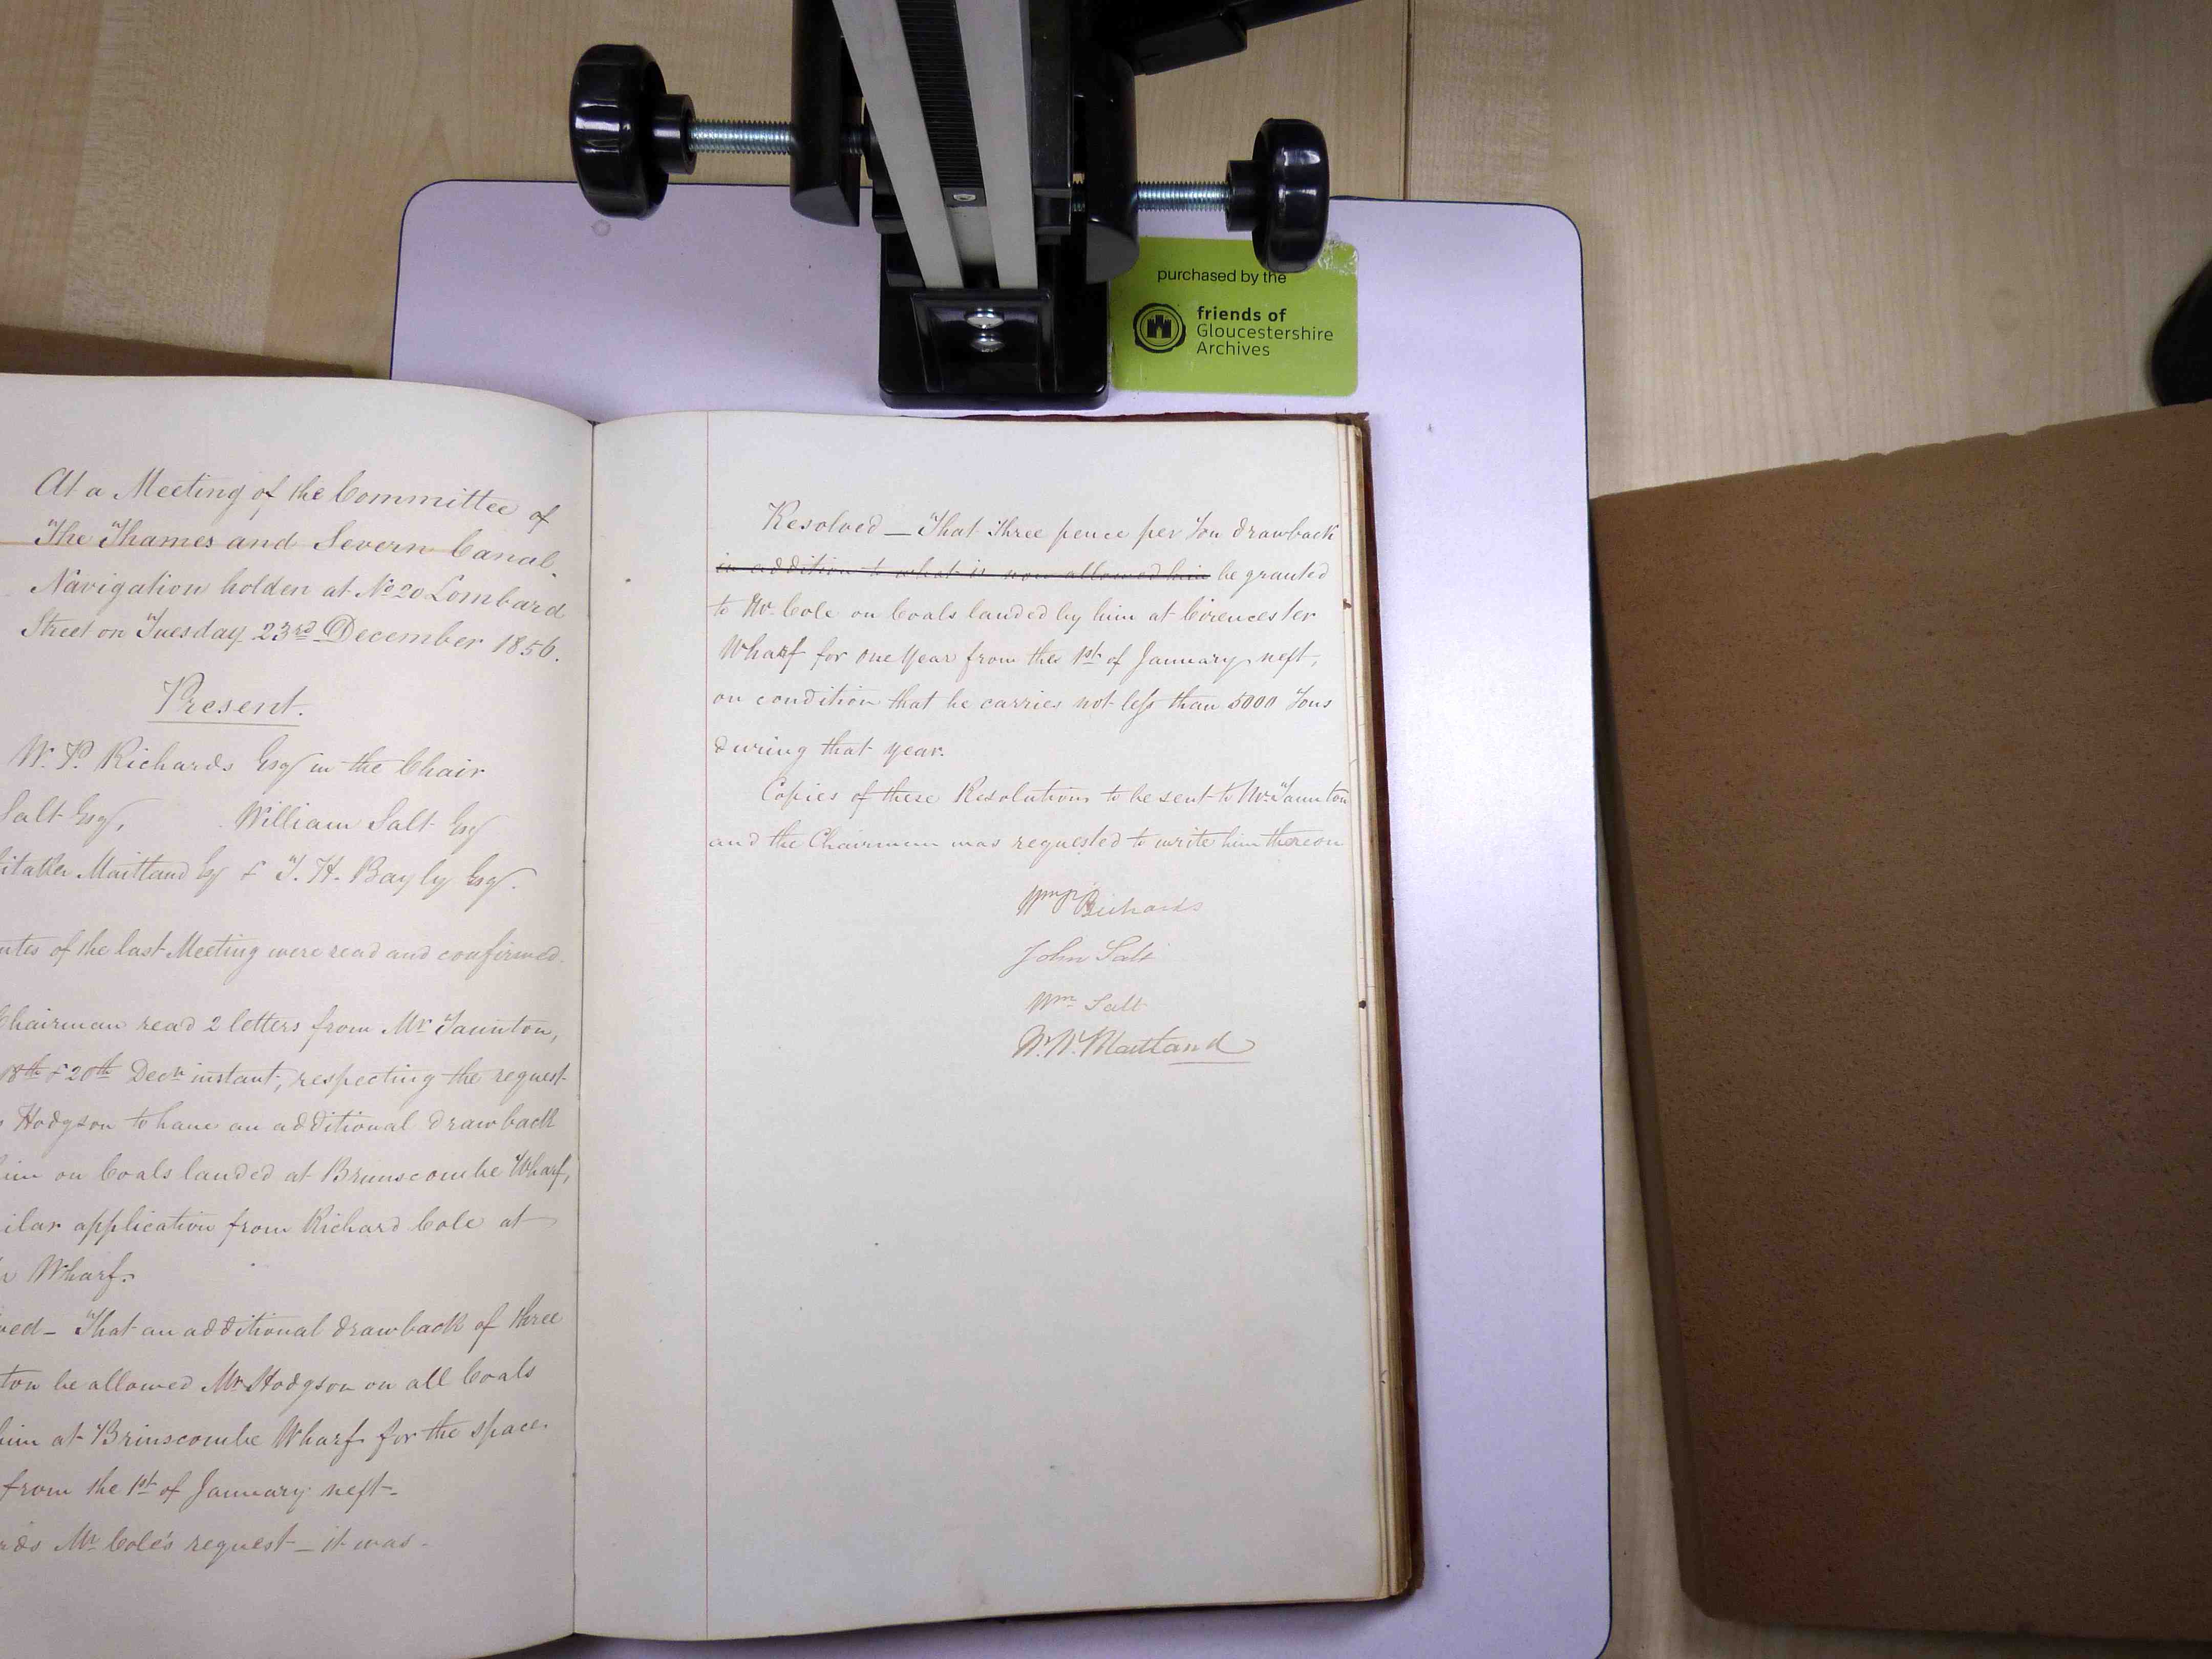 purchased by the
friends of
Gloucestershire
Archives
At a Meeting of the Committee of
The Thames and Severn Canal
Navigation holden at No 20 Lombard
Street on Tuesday 23rd December 1856.
Present.
W. P. Richards Esqr in the Chair
Salt Esqr, William Salt Esqr
Maitland Esqr & T. H. Bayly Esqr.
of the last Meeting were read and confirmed.
Chairman read 2 letters from Mr Taunton,
18th & 20th Decr instant, respecting the request
Hodgson to have an additional drawback
him on Coals landed at Brimscombe Wharf,
application from Richard Cole at
Wharf.
That an additional drawback of three
ton be allowed Mr Hodgson on all Coals
him at Brimscombe Wharf for the space
from the 1st of January next.
Mr Cole's request – it was –
Resolved – That Three pence per Ton drawback
in addition to what is now allowed him be granted
to Mr Cole on Coals landed by him at Cirencester
Wharf for one Year from the 1st of January next,
on condition that he carries not less than 5000 Tons
during that year.
Copies of these Resolutions to be sent to Mr Taunton
and the Chairman was requested to write him thereon
Wm P Richards
John Salt
Wm Salt
W. W. Maitland